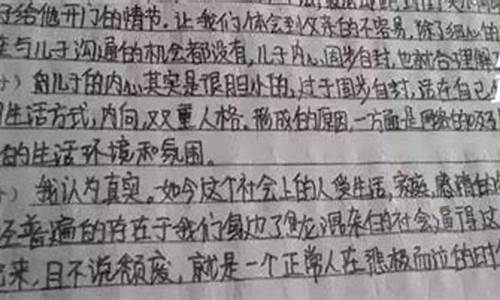 了给他开门的情节。让我们体会到父亲的不容易,除了细心的
与儿子沟通的机会都没有,儿子内心固步自封,也就合理解
)向儿子的内心其实是很胆小的,过于固步自封,活在自己
生活方式,内向,双重人格。形成的原因,一方面是网络的
的生活环境和氛围。
)我认为真实。如今这个社会上的人受生活,家庭,感情的
经普遍的存在于我们身边了,鱼龙混杂的社会,逼得这
来,且不说颓废,就是一个正常人在悲极而泣的时